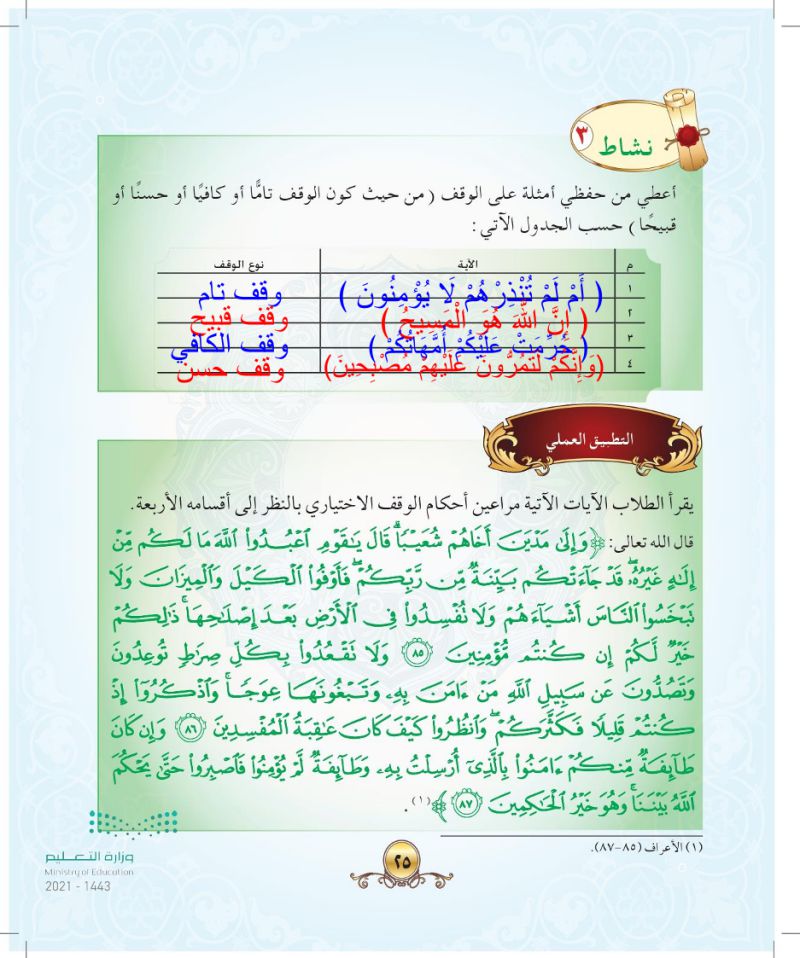 نشاط ٣
أعطي من حفظي أمثلة على الوقف ( من حيث كون الوقف تامًّا أو كافيًا أو حسنًا أو
قبيحًا ) حسب الجدول الآتي :
م الآية نوع الوقف
١ ( أَمْ لَمْ تُنْذِرْهُمْ لَا يُؤْمِنُونَ ) وقف تام
٢ ( إِنَّ اللَّهَ هُوَ الْمَسِيحُ ) وقف قبيح
٣ ( حُرِّمَتْ عَلَيْكُمْ أُمَّهَاتُكُمْ ) وقف الكافي
٤ (وَإِنَّكُمْ لَتَمُرُّونَ عَلَيْهِمْ مُصْبِحِينَ) وقف حسن
التطبيق العملي
يقرأ الطلاب الآيات الآتية مراعين أحكام الوقف الاختياري بالنظر إلى أقسامه الأربعة.
قال الله تعالى: ﴿وَإِلَىٰ مَدْيَنَ أَخَاهُمْ شُعَيْبًاۗ قَالَ يَٰقَوْمِ ٱعْبُدُوا۟ ٱللَّهَ مَا لَكُم مِّنْ
إِلَٰهٍ غَيْرُهُۥۖ قَدْ جَآءَتْكُم بَيِّنَةٌ مِّن رَّبِّكُمْۖ فَأَوْفُوا۟ ٱلْكَيْلَ وَٱلْمِيزَانَ وَلَا
تَبْخَسُوا۟ ٱلنَّاسَ أَشْيَآءَهُمْ وَلَا تُفْسِدُوا۟ فِى ٱلْأَرْضِ بَعْدَ إِصْلَٰحِهَاۚ ذَٰلِكُمْ
خَيْرٌ لَّكُمْ إِن كُنتُم مُّؤْمِنِينَ ٨٥ وَلَا تَقْعُدُوا۟ بِكُلِّ صِرَٰطٍ تُوعِدُونَ
وَتَصُدُّونَ عَن سَبِيلِ ٱللَّهِ مَنْ ءَامَنَ بِهِۦ وَتَبْغُونَهَا عِوَجًاۚ وَٱذْكُرُوٓا۟ إِذْ
كُنتُمْ قَلِيلًا فَكَثَّرَكُمْۖ وَٱنظُرُوا۟ كَيْفَ كَانَ عَٰقِبَةُ ٱلْمُفْسِدِينَ ٨٦ وَإِن كَانَ
طَآئِفَةٌ مِّنكُمْ ءَامَنُوا۟ بِٱلَّذِىٓ أُرْسِلْتُ بِهِۦ وَطَآئِفَةٌ لَّمْ يُؤْمِنُوا۟ فَٱصْبِرُوا۟ حَتَّىٰ يَحْكُمَ
ٱللَّهُ بَيْنَنَاۚ وَهُوَ خَيْرُ ٱلْحَٰكِمِينَ ٨٧﴾(١).
(١) الأعراف (٨٥-٨٧).
٢٥
وزارة التعليم
Ministry of Education
2021 - 1443